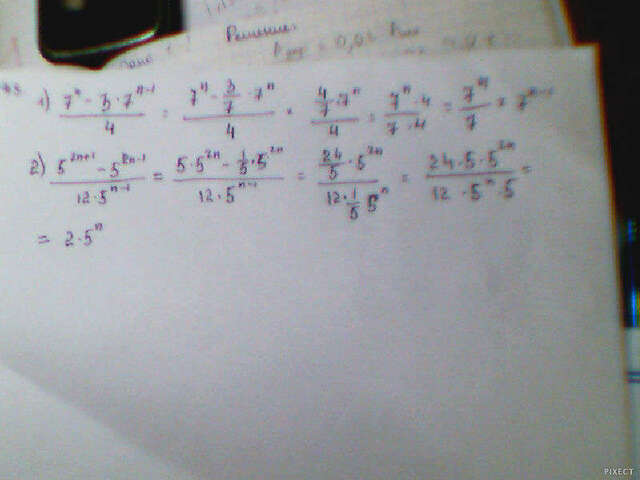 Решение:
1) (7^n - 3·7^(n-1))/4 = (7^n - 3/7·7^n)/4 = (4/7·7^n)/4 = (7^n·4)/(7·4) = 7^n/7 = 7^(n-1)
2) (5^(2n+1) - 5^(2n-1))/(12·5^(n-1)) = (5·5^(2n) - 1/5·5^(2n))/(12·5^(n-1)) = (24/5·5^(2n))/(12·1/5 5^n) = (24·5·5^(2n))/(12·5^n·5) =
= 2·5^n
PIXECT